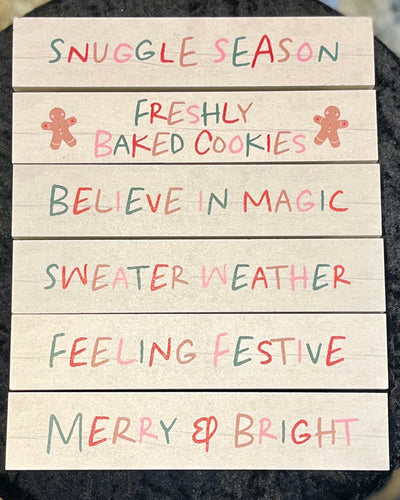 SNUGGLE SEASON
FRESHLY
BAKED COOKIES
BELIEVE IN MAGIC
SWEATER WEATHER
FEELING FESTIVE
MERRY & BRIGHT